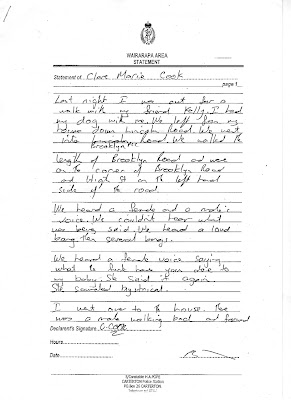 WAIRARAPA AREA
STATEMENT
Statement of Clare Marie Cook
page 1
Last night I was out for a
walk with my friend Kelly. I had
my dog with me. We left from my
home down Lincoln Road. We went
into Road. We walked the
Brooklyn
length of Brooklyn Road and were
on the corner of Brooklyn Road
and High St on the left hand
side of the road.
We heard a female and a male's
voice. We couldn't hear what
was being said. We heard a loud
bang then several bangs.
We heard a female voice saying
what the fuck have you done to
my baby. She said it again.
She sounded hysterical.
I went over to the house. There
was a male walking back and forward
Declarent's Signature C Cook
Hours
Date
CARTERTON Police Station
PO Box 30 CARTERTON